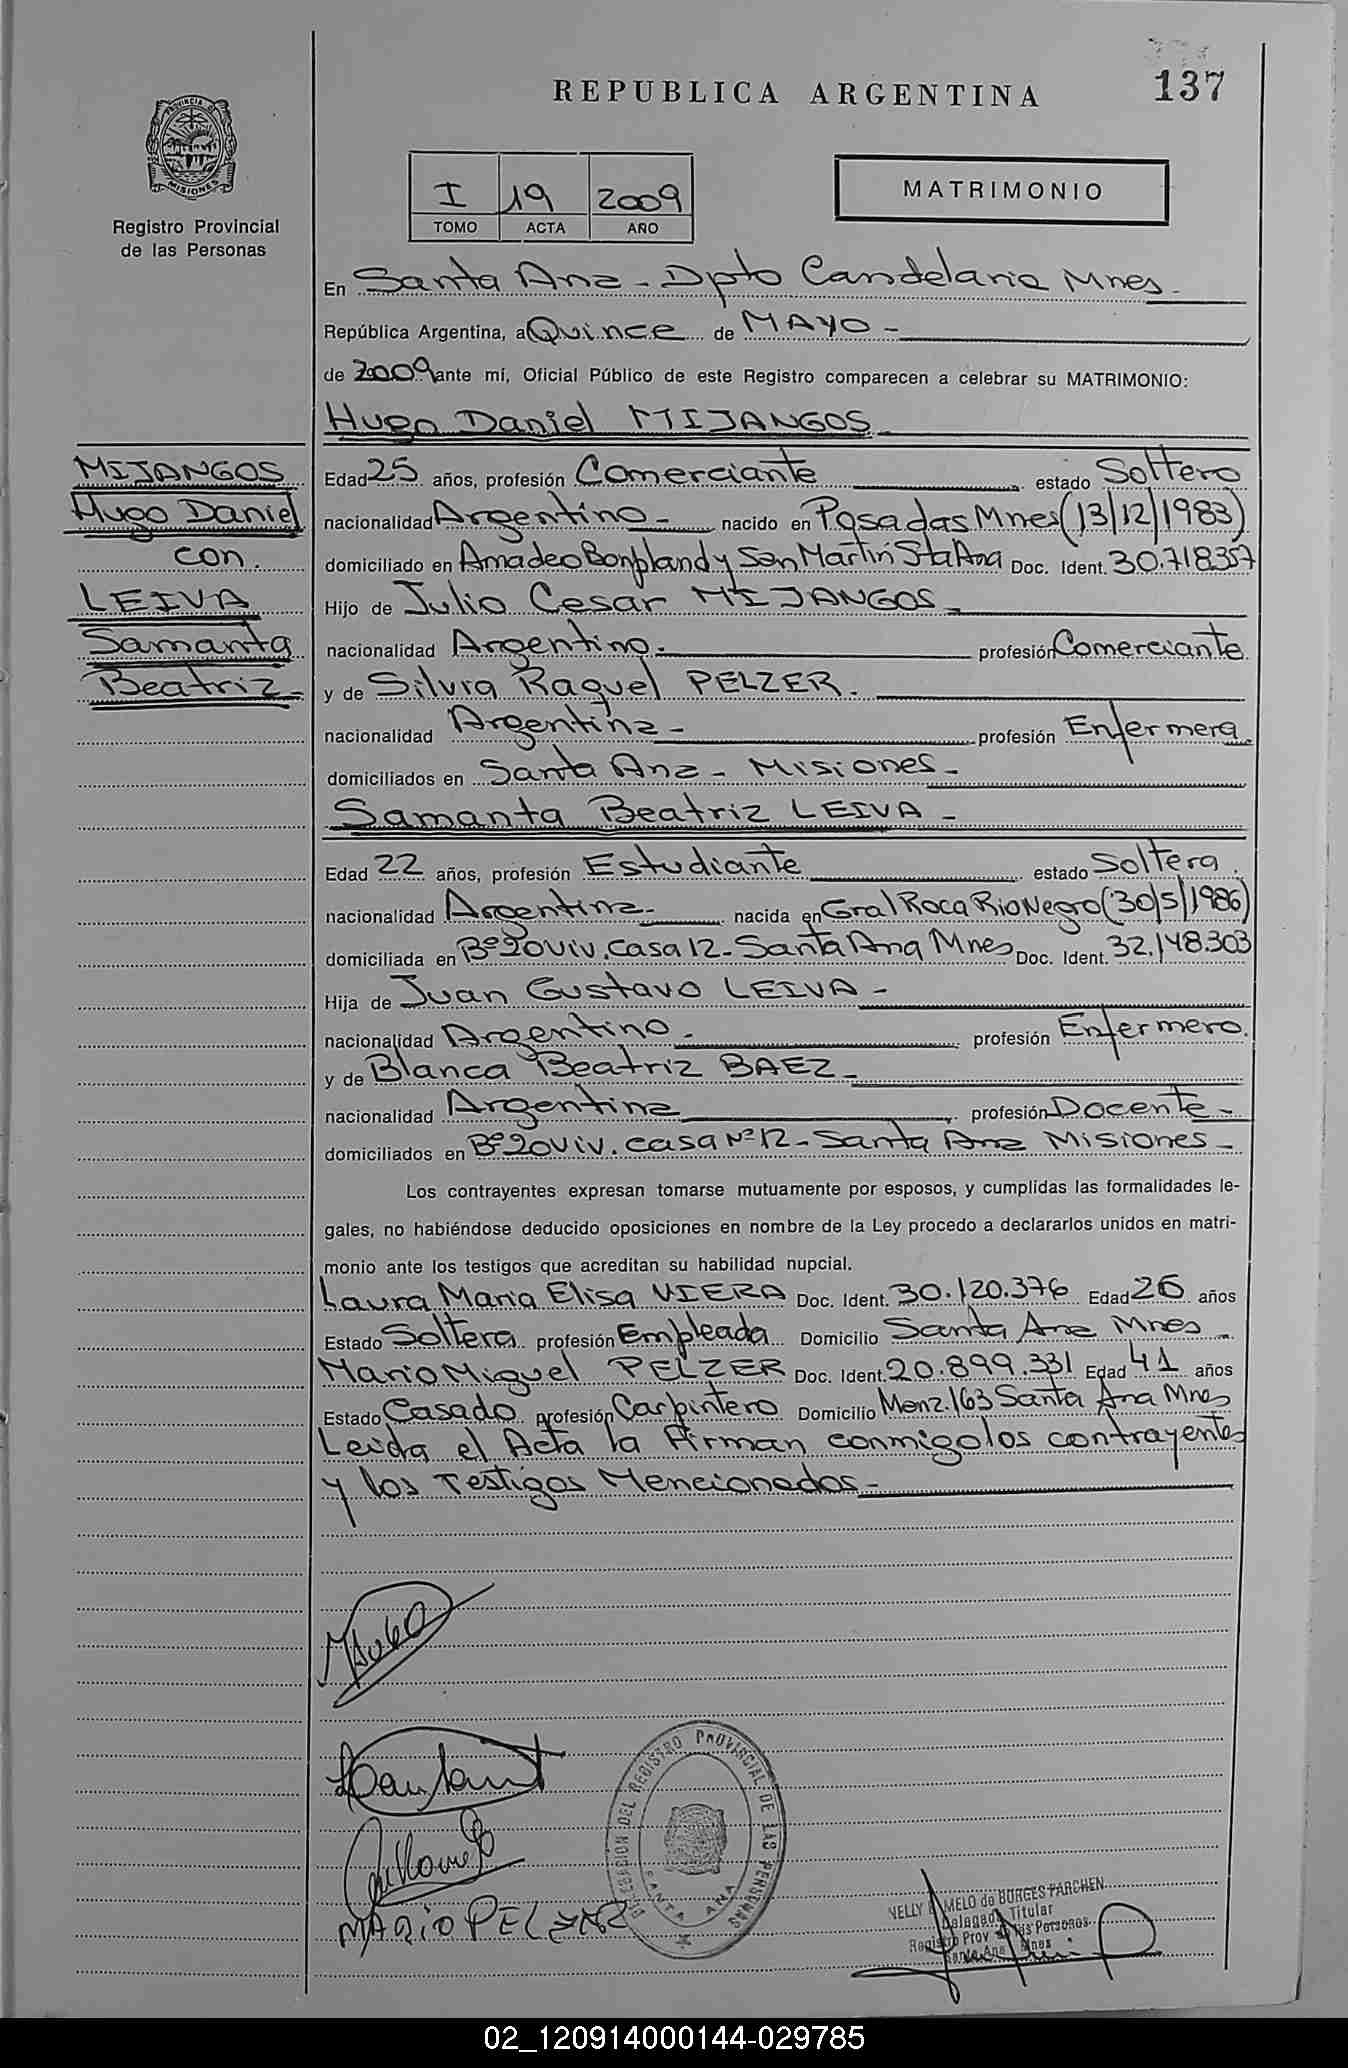 137
REPUBLICA ARGENTINA
PROVINCIA DE
MISIONES
Registro Provincial
de las Personas
I 19 2009
TOMO ACTA AÑO
MATRIMONIO
En Santa Ana - Dpto Candelaria Mnes.
República Argentina, a Quince de MAYO -
de 2009 ante mí, Oficial Público de este Registro comparecen a celebrar su MATRIMONIO:
Hugo Daniel MIJANGOS
MIJANGOS
Hugo Daniel
con.
LEIVA
Samanta
Beatriz -
Edad 25 años, profesión Comerciante estado Soltero
nacionalidad Argentino - nacido en Posadas Mnes (13/12/1983)
domiciliado en Amadeo Bonpland y San Martín Sta Ana Doc. Ident. 30.718.357
Hijo de Julio Cesar MIJANGOS -
nacionalidad Argentino. profesión Comerciante
y de Silvia Raquel PELZER.
nacionalidad Argentina - profesión Enfermera
domiciliados en Santa Ana - Misiones -
Samanta Beatriz LEIVA -
Edad 22 años, profesión Estudiante estado Soltera
nacionalidad Argentina - nacida en Gral Roca Rio Negro (30/5/1986)
domiciliada en Bº 20 viv. casa 12 - Santa Ana Mnes Doc. Ident. 32.148.303
Hija de Juan Gustavo LEIVA -
nacionalidad Argentino. profesión Enfermero.
y de Blanca Beatriz BAEZ -
nacionalidad Argentina profesión Docente -
domiciliados en Bº 20 viv. casa Nº 12 - Santa Ana Misiones -
Los contrayentes expresan tomarse mutuamente por esposos, y cumplidas las formalidades le-
gales, no habiéndose deducido oposiciones en nombre de la Ley procedo a declararlos unidos en matri-
monio ante los testigos que acreditan su habilidad nupcial.
Laura Maria Elisa VIERA Doc. Ident. 30.120.376 Edad 26 años
Estado Soltera profesión Empleada Domicilio Santa Ana Mnes -
Mario Miguel PELZER Doc. Ident. 20.899.331 Edad 41 años
Estado Casado profesión Carpintero Domicilio Manz. 163 Santa Ana Mnes
Leida el Acta la Firman conmigo los contrayentes
y los Testigos Mencionados -
DIRECCION DEL REGISTRO PROVINCIAL DE LAS PERSONAS
SANTA ANA
MARIO PELZER
NELLY MELO de BORGES PARCHEN
Delegada Titular
Registro Prov de las Personas
Santa Ana Mnes
02_120914000144-029785